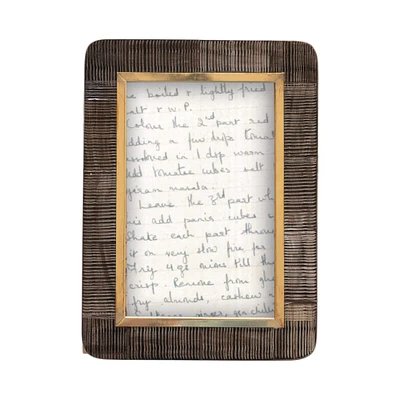 e boiled & lightly fried
alt & w.P.
Colour the 2nd part red
dding a few drops tomat
in 1 dsp warm
dd tomatoe cubes salt
garam masala.
Leave the 3rd part wh
add panir cubes
Shake each part
it on very slow fire for
Fry 4 onions till th
crisp. Remove from ghe
fry almonds, cashew